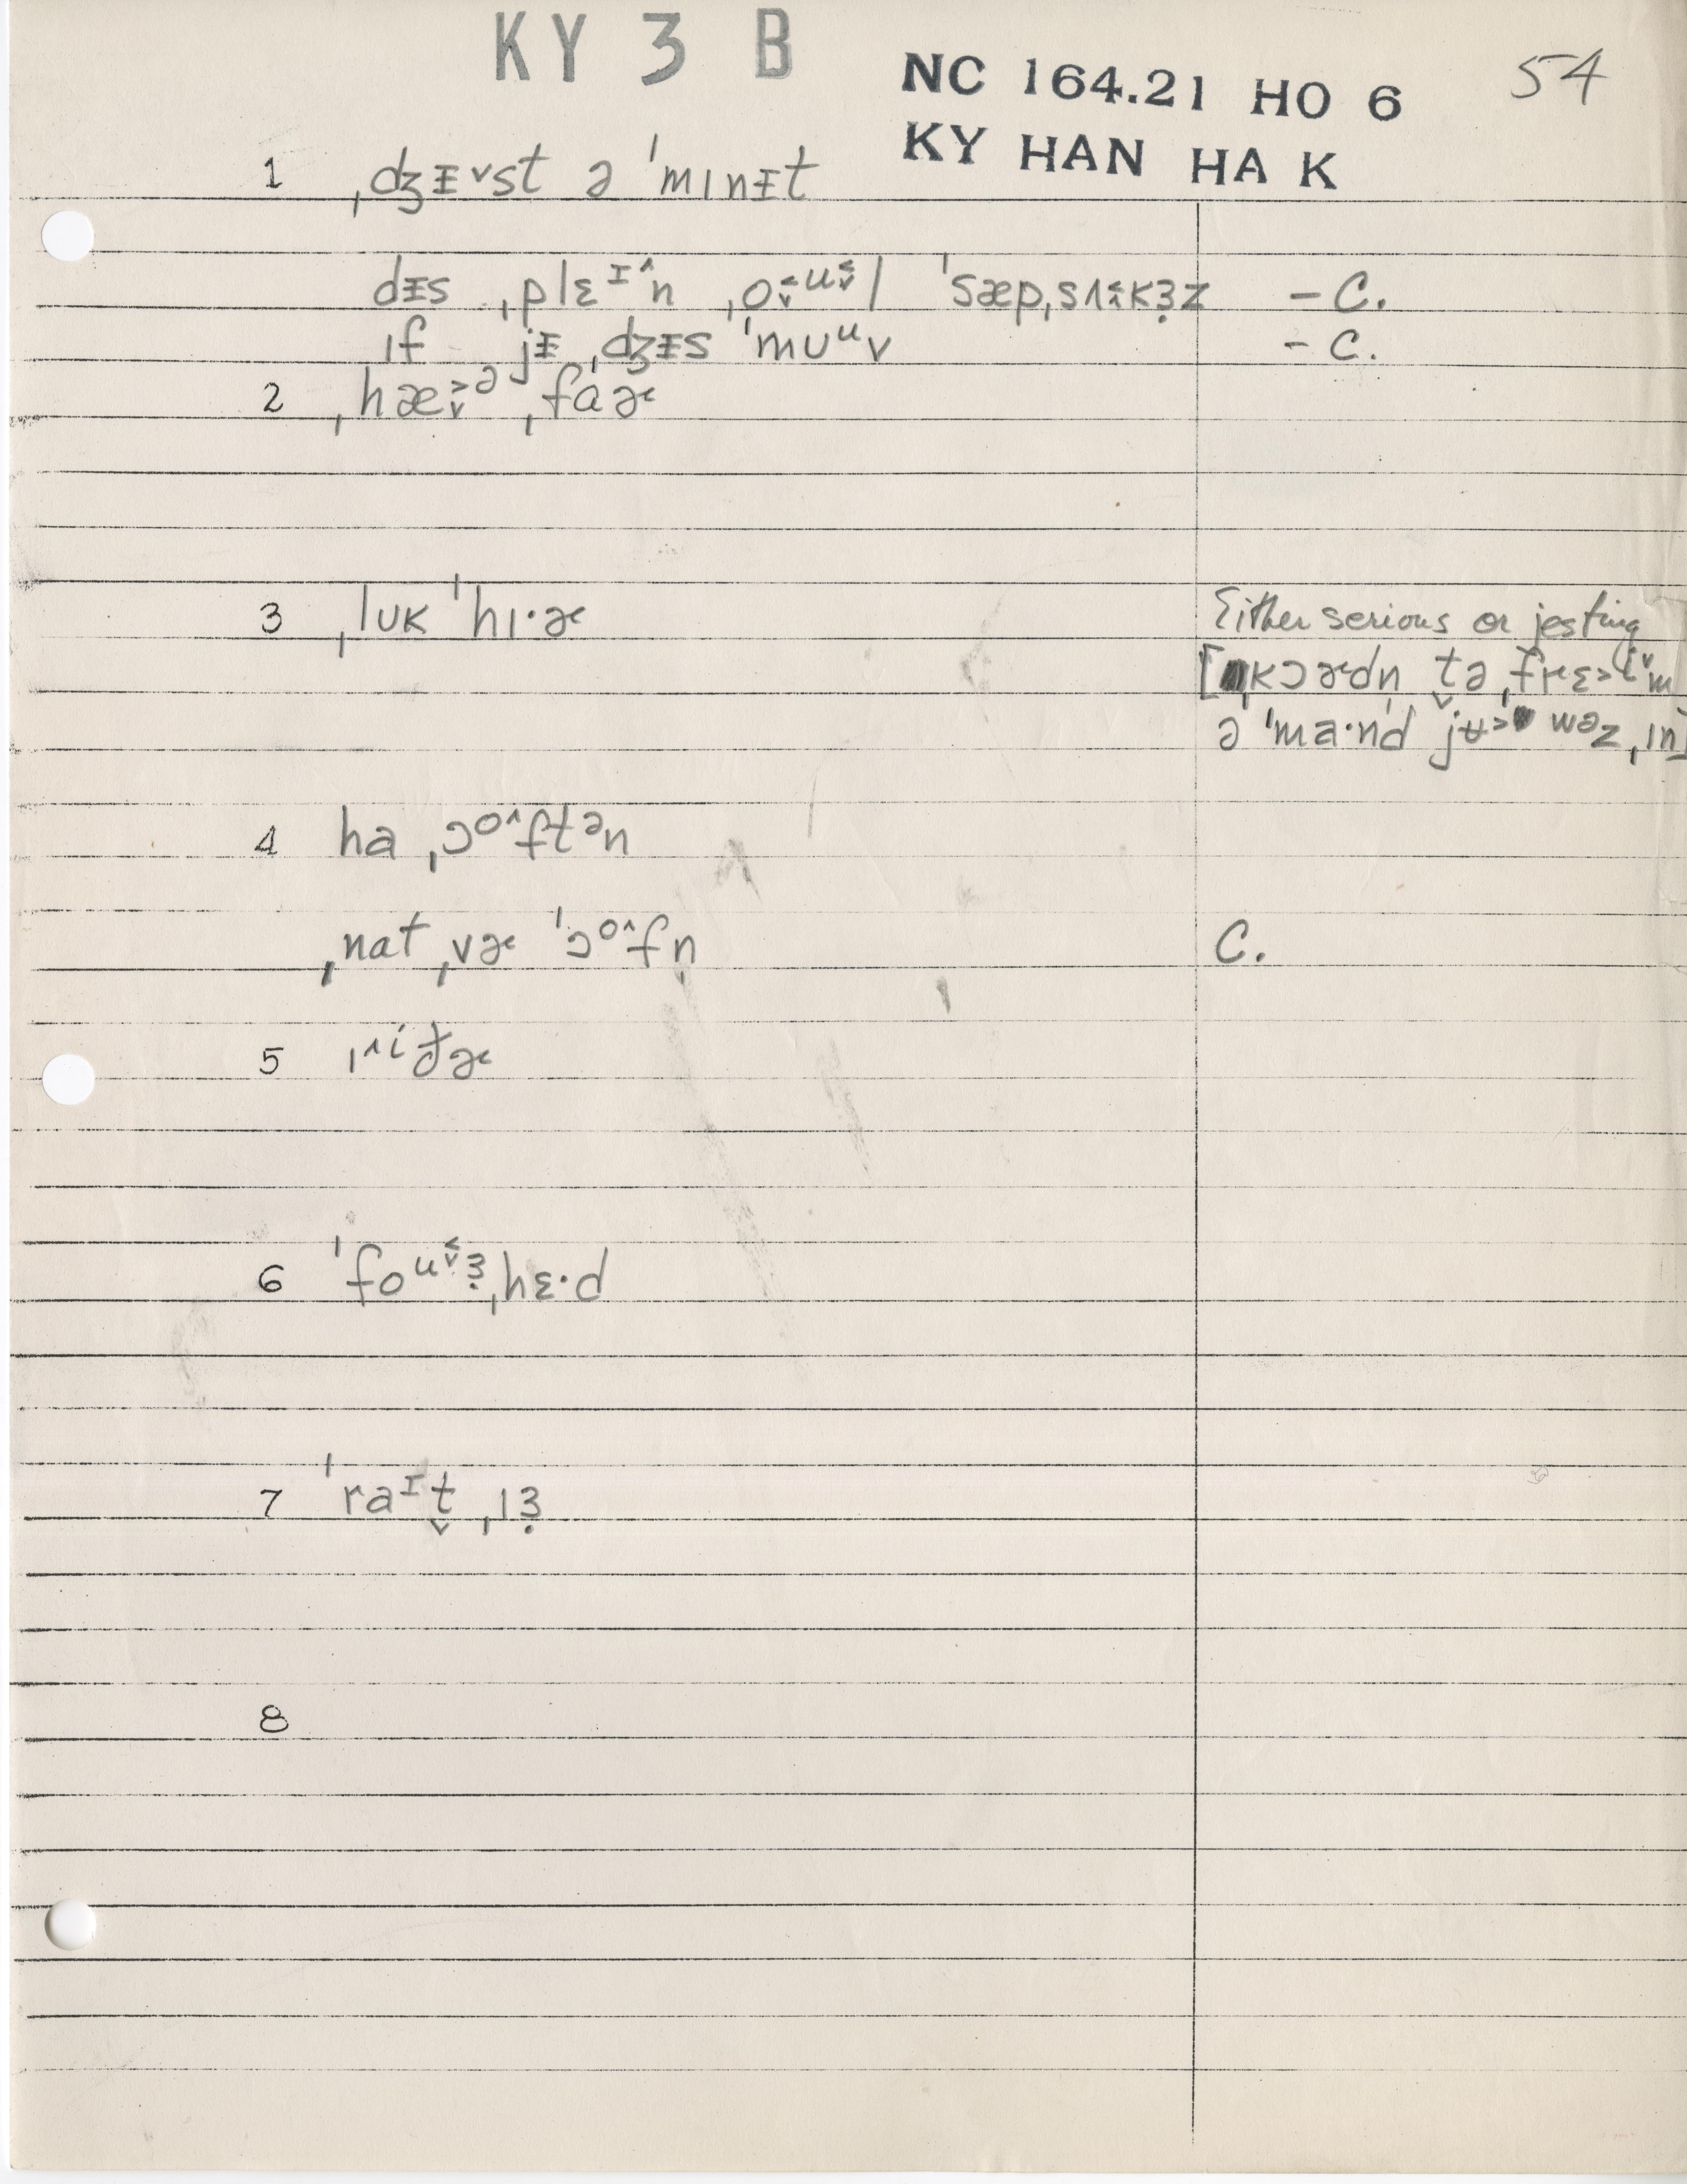 KY 3 B
NC 164.21 HO 6
KY HAN HA K
54
1 ˌdʒᵻ˅st ə ˈmɪnᵻt
dᵻs ˌplɛᶦ^n ˌo˂˅ᵘ˂˅l ˈsæpˌsʌ˂˄kɜ̣z – C.
ɪf jᵻ ˌdʒᵻs ˈmuᵘv – C.
2 ˌhæ˃˅ᵊ ˌfaɚ
3 ˌlʊk ˈhɪ·ɚ
Either serious or jesting
[ˌkɔɚdn̩ t̬ə ˌfrɛ˃ᶦ˅m
ə ˈma·nd jʉ˃ wəz ˌɪn]
4 ha ˌɔᵒ^ftən
ˌnat ˌvɚ ˈɔᵒ^fn̩ C.
5 ɪ^ⁱðɚ
6 ˈfoᵘ˂˅ɜ̣ˌhɛ·d
7 ˈraᶦt̬ ˌɪɜ̣
8